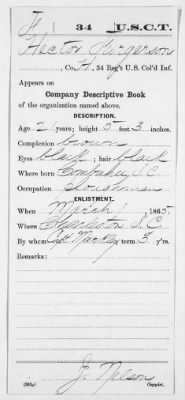 F 34 U.S.C.T.
Hector Furgerson
, Co. H, 34 Reg't U.S. Col'd Inf.
Appears on
Company Descriptive Book
of the organization named above.
DESCRIPTION.
Age 21 years; height 5 feet 3 inches.
Complexion brown
Eyes black; hair black
Where born Combahee, S.C.
Occupation ploughman
ENLISTMENT.
When March 1, 1865.
Where Charleston S.C.
By whom term 3 y'rs.
Remarks:
J. Nelson
Copyist.